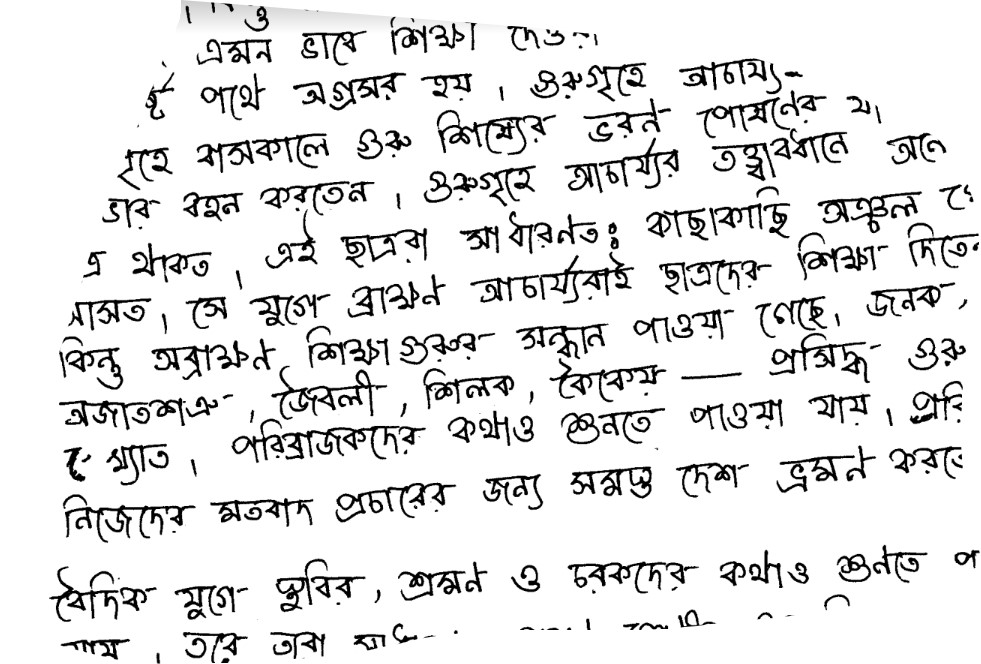 ও
এমন ভাবে শিক্ষা
পথে অগ্রসর হয়। গুরুগৃহে আচার্য্য-
গৃহে বাসকালে গুরু শিষ্যের ভরণ পোষনের
ভার বহন করতেন। গুরুগৃহে আচার্য্যর তত্ত্বাবধানে অনে
এ থাকত। এই ছাত্ররা সাধারণতঃ কাছাকাছি অঞ্চল
আসত। সে যুগে ব্রাহ্মণ আচার্য্যরাই ছাত্রদের শিক্ষা দিতেন
কিন্তু অব্রাহ্মণ শিক্ষাগুরুর সন্ধান পাওয়া গেছে। জনক,
অজাতশত্রু, জৈবলী, শিলক, কৈকেয় — প্রসিদ্ধ গুরু
খ্যাত। পরিব্রাজকদের কথাও শুনতে পাওয়া যায়। পরি
নিজেদের মতবাদ প্রচারের জন্য সমস্ত দেশ ভ্রমণ করতে
বৈদিক যুগে স্থবির, শ্রমণ ও চরকদের কথাও শুনতে প
যায়। তবে তারা